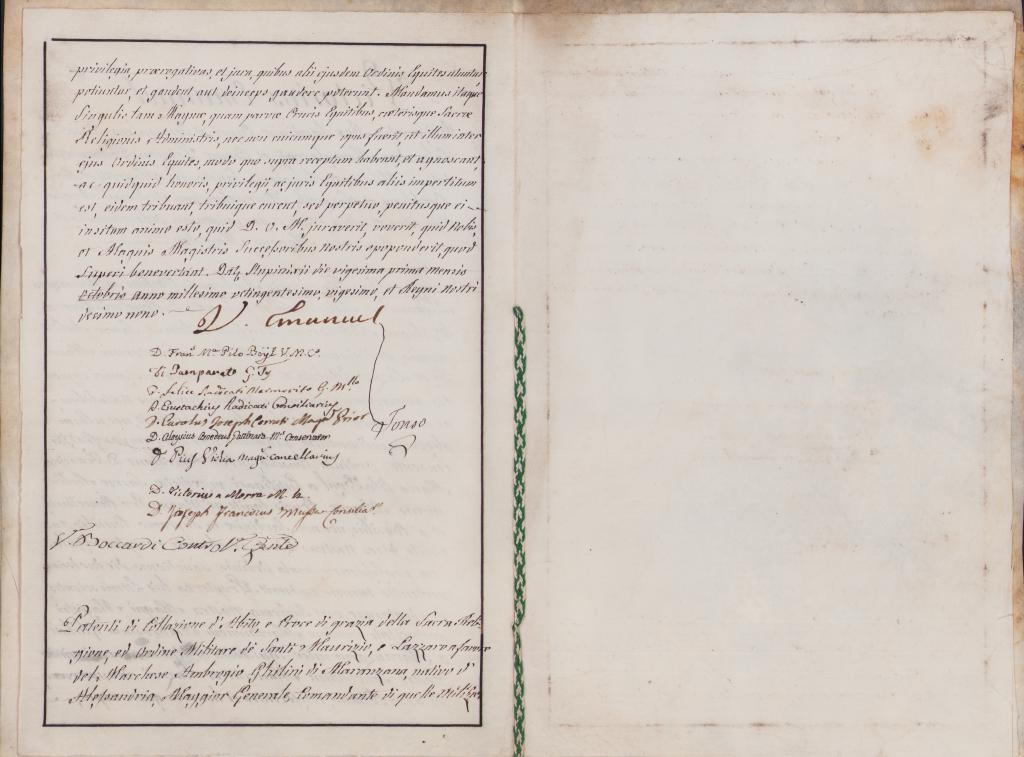 privilegia, prærogativas, et jura, quibus alii ejusdem Ordinis Equites utuntur
potiuntur, et gaudent, aut deinceps gaudere poterint. Mandamus itaque
Singulis tam Magnæ, quam parvæ Crucis Equitibus, cæterisque Sacræ
Religionis Administris, nec non cuicumque opus fuerit, ut illum inter
ejus Ordinis Equites, modo quo supra receptum habeant, et agnoscant,
ac quidquid honoris, privilegii, ac juris Equitibus aliis impertitum
est, eidem tribuant, tribuique curent, sed perpetuo, penitusque ei
insitum animo esto, quid D. O. M. juraverit, voverit, quid Nobis,
et Magnis Magistris Successoribus nostris spoponderit, quod
Superi benevertant. Dat. Stupinixii die vigesima prima mensis
Octobris anno millesimo octingentesimo, vigesimo, et Regni Nostri
decimo nono.
V. Emanuel
D. Fran. Ma. Pilo Boÿl V. M. C.
Di Pamparato G.
F. Felice Radicati Marmorito G. Mllo
D. Eustachius Radicati Consiliarius
D. Carolus Joseph Cerruti Mag. Prior
Tonso
D. Aloysius Gattinara Ms. Conservator
D. Pius Vidua Magn. Cancellarius
D. Victorius a Morra M.
D. Joseph Franciscus Consilia
V. Boccardi Contro
Patenti di Collazione d'Abito, e Croce di grazia della Sacra Reli-
gione, ed Ordine Militare de Santi Maurizio, e Lazzaro a favore
del Marchese Ambrogio Ghilini di Maranzana, nativo d'
Alessandria, Maggior Generale, Comandante di quelle Milizie